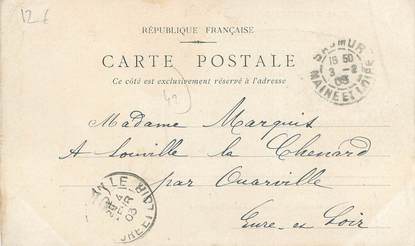 12€
RÉPUBLIQUE FRANÇAISE
CARTE POSTALE
Ce côté est exclusivement réservé à l'adresse
SAUMUR
18 50
3 - 2
03
MAINE ET LOIRE
49
Madame Marquis
A Louville la Chenard
par Ouarville
Eure et Loir
4
03